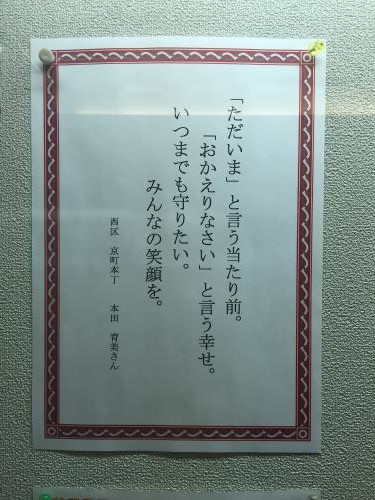 「ただいま」と言う当たり前。
「おかえりなさい」と言う幸せ。
いつまでも守りたい。
みんなの笑顔を。
西区 京町本丁 本田 育美さん